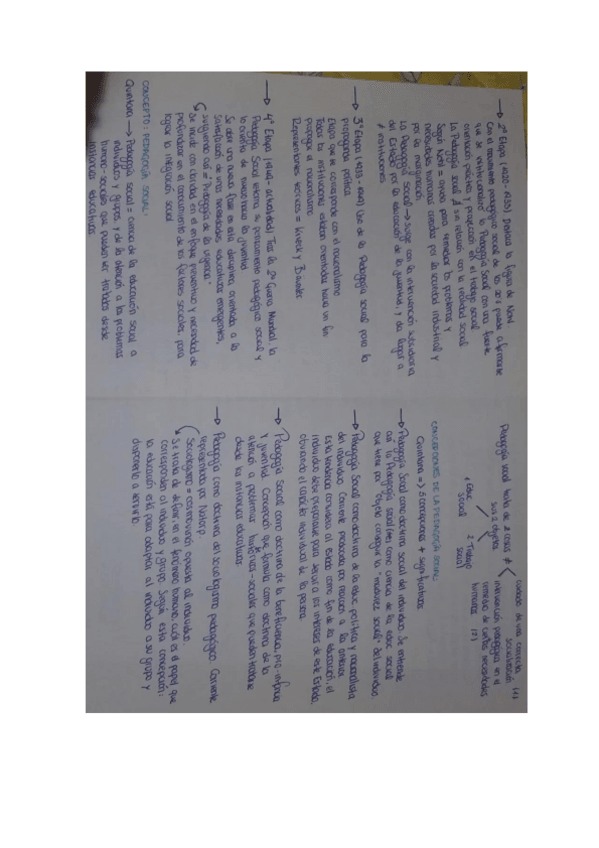 → 2ª Etapa (1920-1933) Destaca la figura de Nohl
Con el movimiento pedagógico social de los 20's puede afirmarse
que se institucionaliza la Pedagogía Social con una fuerte
orientación práctica y proyección en el trabajo social
La Pedagogía social ≠ sin relación con la realidad social
Según Nohl = ayuda para remediar los problemas y
necesidades humanas creadas por la sociedad industrial y
por la inmigración.
La Pedagogía social → surge con la intervención subsidiaria
del Estado por la educación de la juventud y da lugar a
≠ instituciones
→ 3ª Etapa (1933-1949) Uso de la Pedagogía social para la
propaganda política
Etapa que se corresponde con el nacionalismo
Todas las instituciones estaban orientadas hacia un fin:
propagar el nacionalismo
Representantes teóricos = Krieck y Baumler
→ 4ª Etapa (1949-actualidad) Tras la 2ª Guerra Mundial, la
Pedagogía Social retoma su pensamiento pedagógico social y
lo orienta de nuevo hacia la juventud
Se abre una nueva fase en esta disciplina orientada a la
satisfacción de unas necesidades educativas emergentes,
surgiendo así = "Pedagogía de la Urgencia"
Se incide con claridad en el enfoque preventivo y necesidad de
profundizar en el conocimiento de los factores sociales para
lograr la integración social
CONCEPTO: PEDAGOGÍA SOCIAL:
Quintana → Pedagogía social = ciencia de la educación social a
individuos y grupos y de la atención a los problemas
humano-sociales que pueden ser tratados desde
instancias educativas
Pedagogía social trata de 2 cosas ≠
cuidado de una correcta
socialización (1)
intervención pedagógica en el
remedio de ciertas necesidades
humanas (2)
sus 2 objetos
1. Educ
social
2. Trabajo
social
CONCEPCIONES DE LA PEDAGOGÍA SOCIAL
Quintana => 5 concepciones + significativas
→ Pedagogía Social como doctrina social del individuo. Se entiende
así la Pedagogía social como ciencia de la educ social
que tiene por objeto conseguir la "madurez social" del individuo.
→ Pedagogía Social como doctrina de la educ política y nacionalista
del individuo. Corriente producida por reacción a la anterior
esta tendencia convierte al estado como fin de la educación, el
individuo debe prepararse para servir a los intereses de este Estado,
obviando el carácter individual de la persona
→ Pedagogía Social como doctrina de la beneficencia, pro-infancia
y juventud. Concepción que formula como doctrina de la
atención a problemas humanos-sociales que pueden tratarse
desde las instancias educativas
→ Pedagogía como doctrina del sociologismo pedagógico. Corriente
representada por Natorp
Sociologismo = cosmovisión opuesta al individuo.
Se trata de definir, en el fenómeno humano, cuál es el papel que
corresponde al individuo y grupo. Según esta concepción:
la educación está para adaptar al individuo a su grupo y
disponerlo a servirlo.